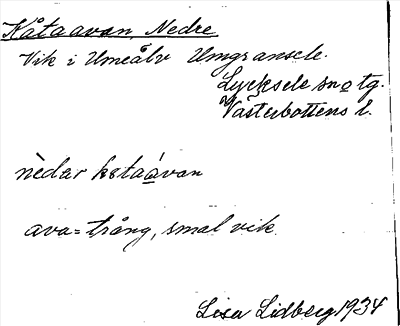 Kåtaavan, Nedre
Vik i Umeälv Umgransele.
Lycksele sn o tg.
Västerbottens l.
nèdar kåtaávan
ava = trång, smal vik.
Lisa Lidberg 1934